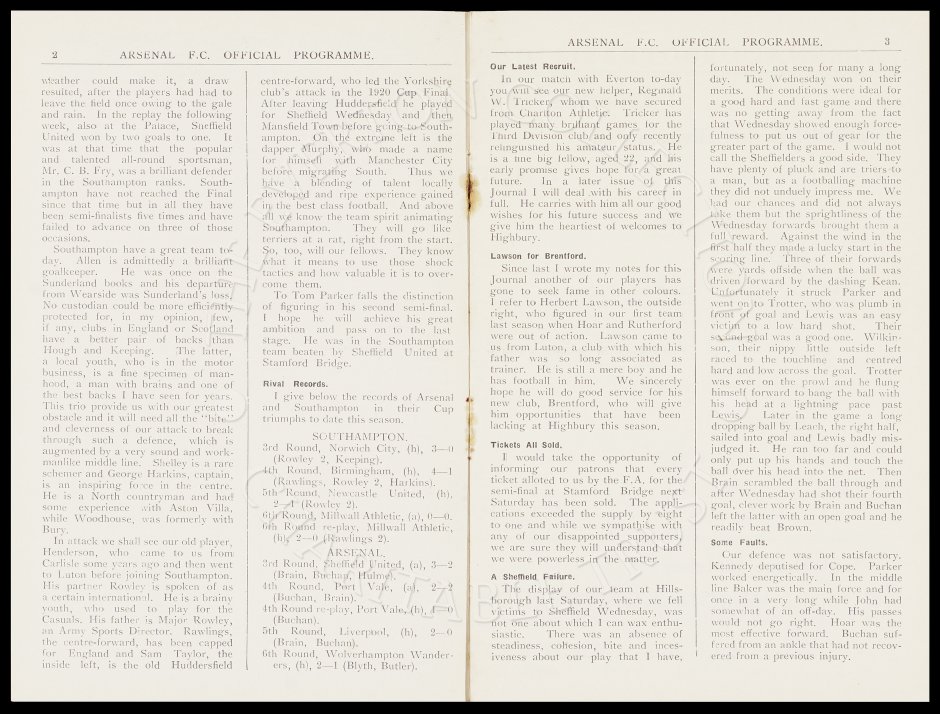 2 ARSENAL F.C. OFFICIAL PROGRAMME.
weather could make it, a draw
resulted, after the players had had to
leave the field once owing to the gale
and rain. In the replay the following
week, also at the Palace, Sheffield
United won by two goals to one. It
was at that time that the popular
and talented all-round sportsman,
Mr. C. B. Fry, was a brilliant defender
in the Southampton ranks. South-
ampton have not reached the Final
since that time but in all they have
been semi-finalists five times and have
failed to advance on three of those
occasions.
Southampton have a great team to-
day. Allen is admittedly a brilliant
goalkeeper. He was once on the
Sunderland books and his departure
from Wearside was Sunderland's loss.
No custodian could be more efficiently
protected for, in my opinion, few,
if any, clubs in England or Scotland
have a better pair of backs than
Hough and Keeping. The latter,
a local youth, who is in the motor
business, is a fine specimen of man-
hood, a man with brains and one of
the best backs I have seen for years.
This trio provide us with our greatest
obstacle and it will need all the "bite"
and cleverness of our attack to break
through such a defence, which is
augmented by a very sound and work-
manlike middle line. Shelley is a rare
schemer and George Harkins, captain,
is an inspiring force in the centre.
He is a North countryman and had
some experience with Aston Villa,
while Woodhouse, was formerly with
Bury.
In attack we shall see our old player,
Henderson, who came to us from
Carlisle some years ago and then went
to Luton before joining Southampton.
His partner Rowley is spoken of as
a certain international. He is a brainy
youth, who used to play for the
Casuals. His father is Major Rowley,
an Army Sports Director. Rawlings,
the centre-forward, has been capped
for England and Sam Taylor, the
inside left, is the old Huddersfield
centre-forward, who led the Yorkshire
club's attack in the 1920 Cup Final.
After leaving Huddersfield he played
for Sheffield Wednesday and then
Mansfield Town before going to South-
ampton. On the extreme left is the
dapper Murphy, who made a name
for himself with Manchester City
before migrating South. Thus we
have a blending of talent locally
developed and ripe experience gained
in the best class football. And above
all we know the team spirit animating
Southampton. They will go like
terriers at a rat, right from the start.
So, too, will our fellows. They know
what it means to use those shock
tactics and how valuable it is to over-
come them.
To Tom Parker falls the distinction
of figuring in his second semi-final.
I hope he will achieve his great
ambition and pass on to the last
stage. He was in the Southampton
team beaten by Sheffield United at
Stamford Bridge.
Rival Records.
I give below the records of Arsenal
and Southampton in their Cup
triumphs to date this season.
SOUTHAMPTON.
3rd Round, Norwich City, (h), 3—0
(Rowley 2, Keeping).
4th Round, Birmingham, (h), 4—1
(Rawlings, Rowley 2, Harkins).
5th Round, Newcastle United, (h),
2—1 (Rowley 2).
6th Round, Millwall Athletic, (a), 0—0.
6th Round re-play, Millwall Athletic,
(h), 2—0 (Rawlings 2).
ARSENAL.
3rd Round, Sheffield United, (a), 3—2
(Brain, Buchan, Hulme).
4th Round, Port Vale, (a), 2—2
(Buchan, Brain).
4th Round re-play, Port Vale, (h),
(Buchan).
5th Round, Liverpool, (h), 2—0
(Brain, Buchan).
6th Round, Wolverhampton Wander-
ers, (h), 2—1 (Blyth, Butler).
ARSENAL F.C. OFFICIAL PROGRAMME. 3
Our Latest Recruit.
In our match with Everton to-day
you will see our new helper, Reginald
W. Tricker, whom we have secured
from Charlton Athletic. Tricker has
played many brilliant games for the
Third Division club and only recently
relinguished his amateur status. He
is a fine big fellow, aged 22, and his
early promise gives hope for a great
future. In a later issue of this
Journal I will deal with his career in
full. He carries with him all our good
wishes for his future success and we
give him the heartiest of welcomes to
Highbury.
Lawson for Brentford.
Since last I wrote my notes for this
Journal another of our players has
gone to seek fame in other colours.
I refer to Herbert Lawson, the outside
right, who figured in our first team
last season when Hoar and Rutherford
were out of action. Lawson came to
us from Luton, a club with which his
father was so long associated as
trainer. He is still a mere boy and he
has football in him. We sincerely
hope he will do good service for his
new club, Brentford, who will give
him opportunities that have been
lacking at Highbury this season.
Tickets All Sold.
I would take the opportunity of
informing our patrons that every
ticket alloted to us by the F.A. for the
semi-final at Stamford Bridge next
Saturday has been sold. The appli-
cations exceeded the supply by eight
to one and while we sympathise with
any of our disappointed supporters
we are sure they will understand that
we were powerless in the matter.
A Sheffield Failure.
The display of our team at Hills-
borough last Saturday, where we fell
victims to Sheffield Wednesday, was
not one about which I can wax enthu-
siastic. There was an absence of
steadiness, cohesion, bite and inces-
iveness about our play that I have,
fortunately, not seen for many a long
day. The Wednesday won on their
merits. The conditions were ideal for
a good hard and fast game and there
was no getting away from the fact
that Wednesday showed enough force-
fulness to put us out of gear for the
greater part of the game. I would not
call the Sheffielders a good side. They
have plenty of pluck and are triers to
a man, but as a footballing machine
they did not unduely impress me. We
had our chances and did not always
take them but the sprightliness of the
Wednesday forwards brought them a
full reward. Against the wind in the
first half they made a lucky start in the
scoring line. Three of their forwards
were yards offside when the ball was
driven forward by the dashing Kean.
Unfortunately it struck Parker and
went on to Trotter, who was plumb in
front of goal and Lewis was an easy
victim to a low hard shot. Their
second goal was a good one. Wilkin-
son, their nippy little outside left
raced to the touchline and centred
hard and low across the goal. Trotter
was ever on the prowl and he flung
himself forward to bang the ball with
his head at a lightning pace past
Lewis. Later in the game a long
dropping ball by Leach, the right half,
sailed into goal and Lewis badly mis-
judged it. He ran too far and could
only put up his hands and touch the
ball over his head into the net. Then
Brain scrambled the ball through and
after Wednesday had shot their fourth
goal, clever work by Brain and Buchan
left the latter with an open goal and he
readily beat Brown.
Some Faults.
Our defence was not satisfactory.
Kennedy deputised for Cope. Parker
worked energetically. In the middle
line Baker was the main force and for
once in a very long while John had
somewhat of an off-day. His passes
would not go right. Hoar was the
most effective forward. Buchan suf-
fered from an ankle that had not recov-
ered from a previous injury.